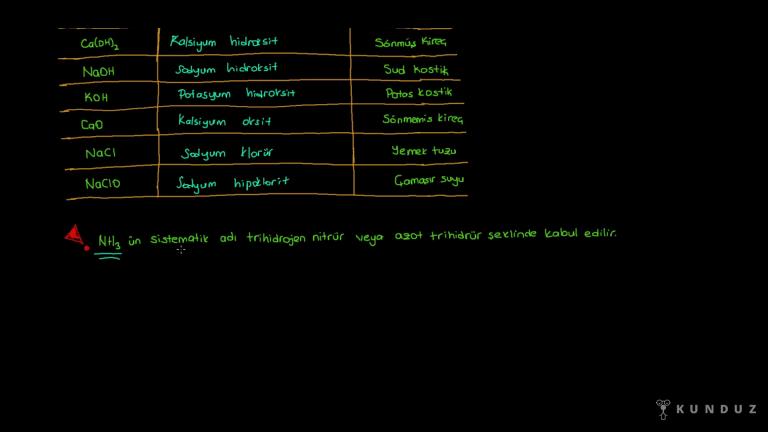 Ca(OH)₂ Kalsiyum hidroksit Sönmüş kireç
NaOH Sodyum hidroksit Sud kostik
KOH Potasyum hidroksit Potas kostik
CaO Kalsiyum oksit Sönmemiş kireç
NaCl Sodyum klorür Yemek tuzu
NaClO Sodyum hipoklorit Çamaşır suyu
NH₃ ün sistematik adı trihidrojen nitrür veya azot trihidrür şeklinde kabul edilir.
KUNDUZ